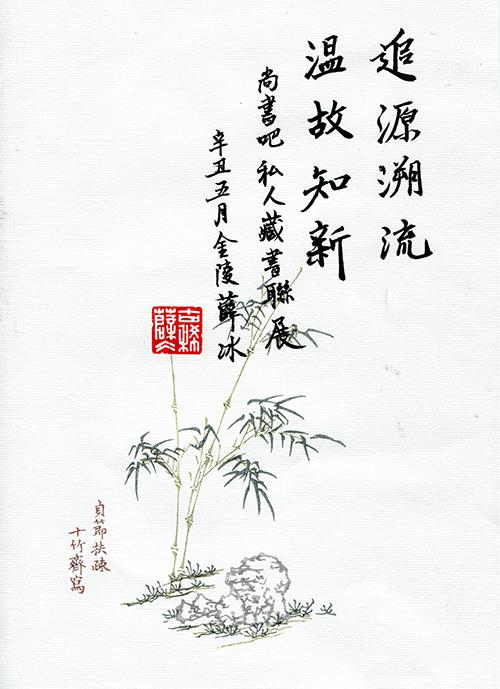 追源溯流
温故知新
尚書吧私人藏書聯展
辛丑五月金陵薛冰
貞節扶疎
十竹齋寫